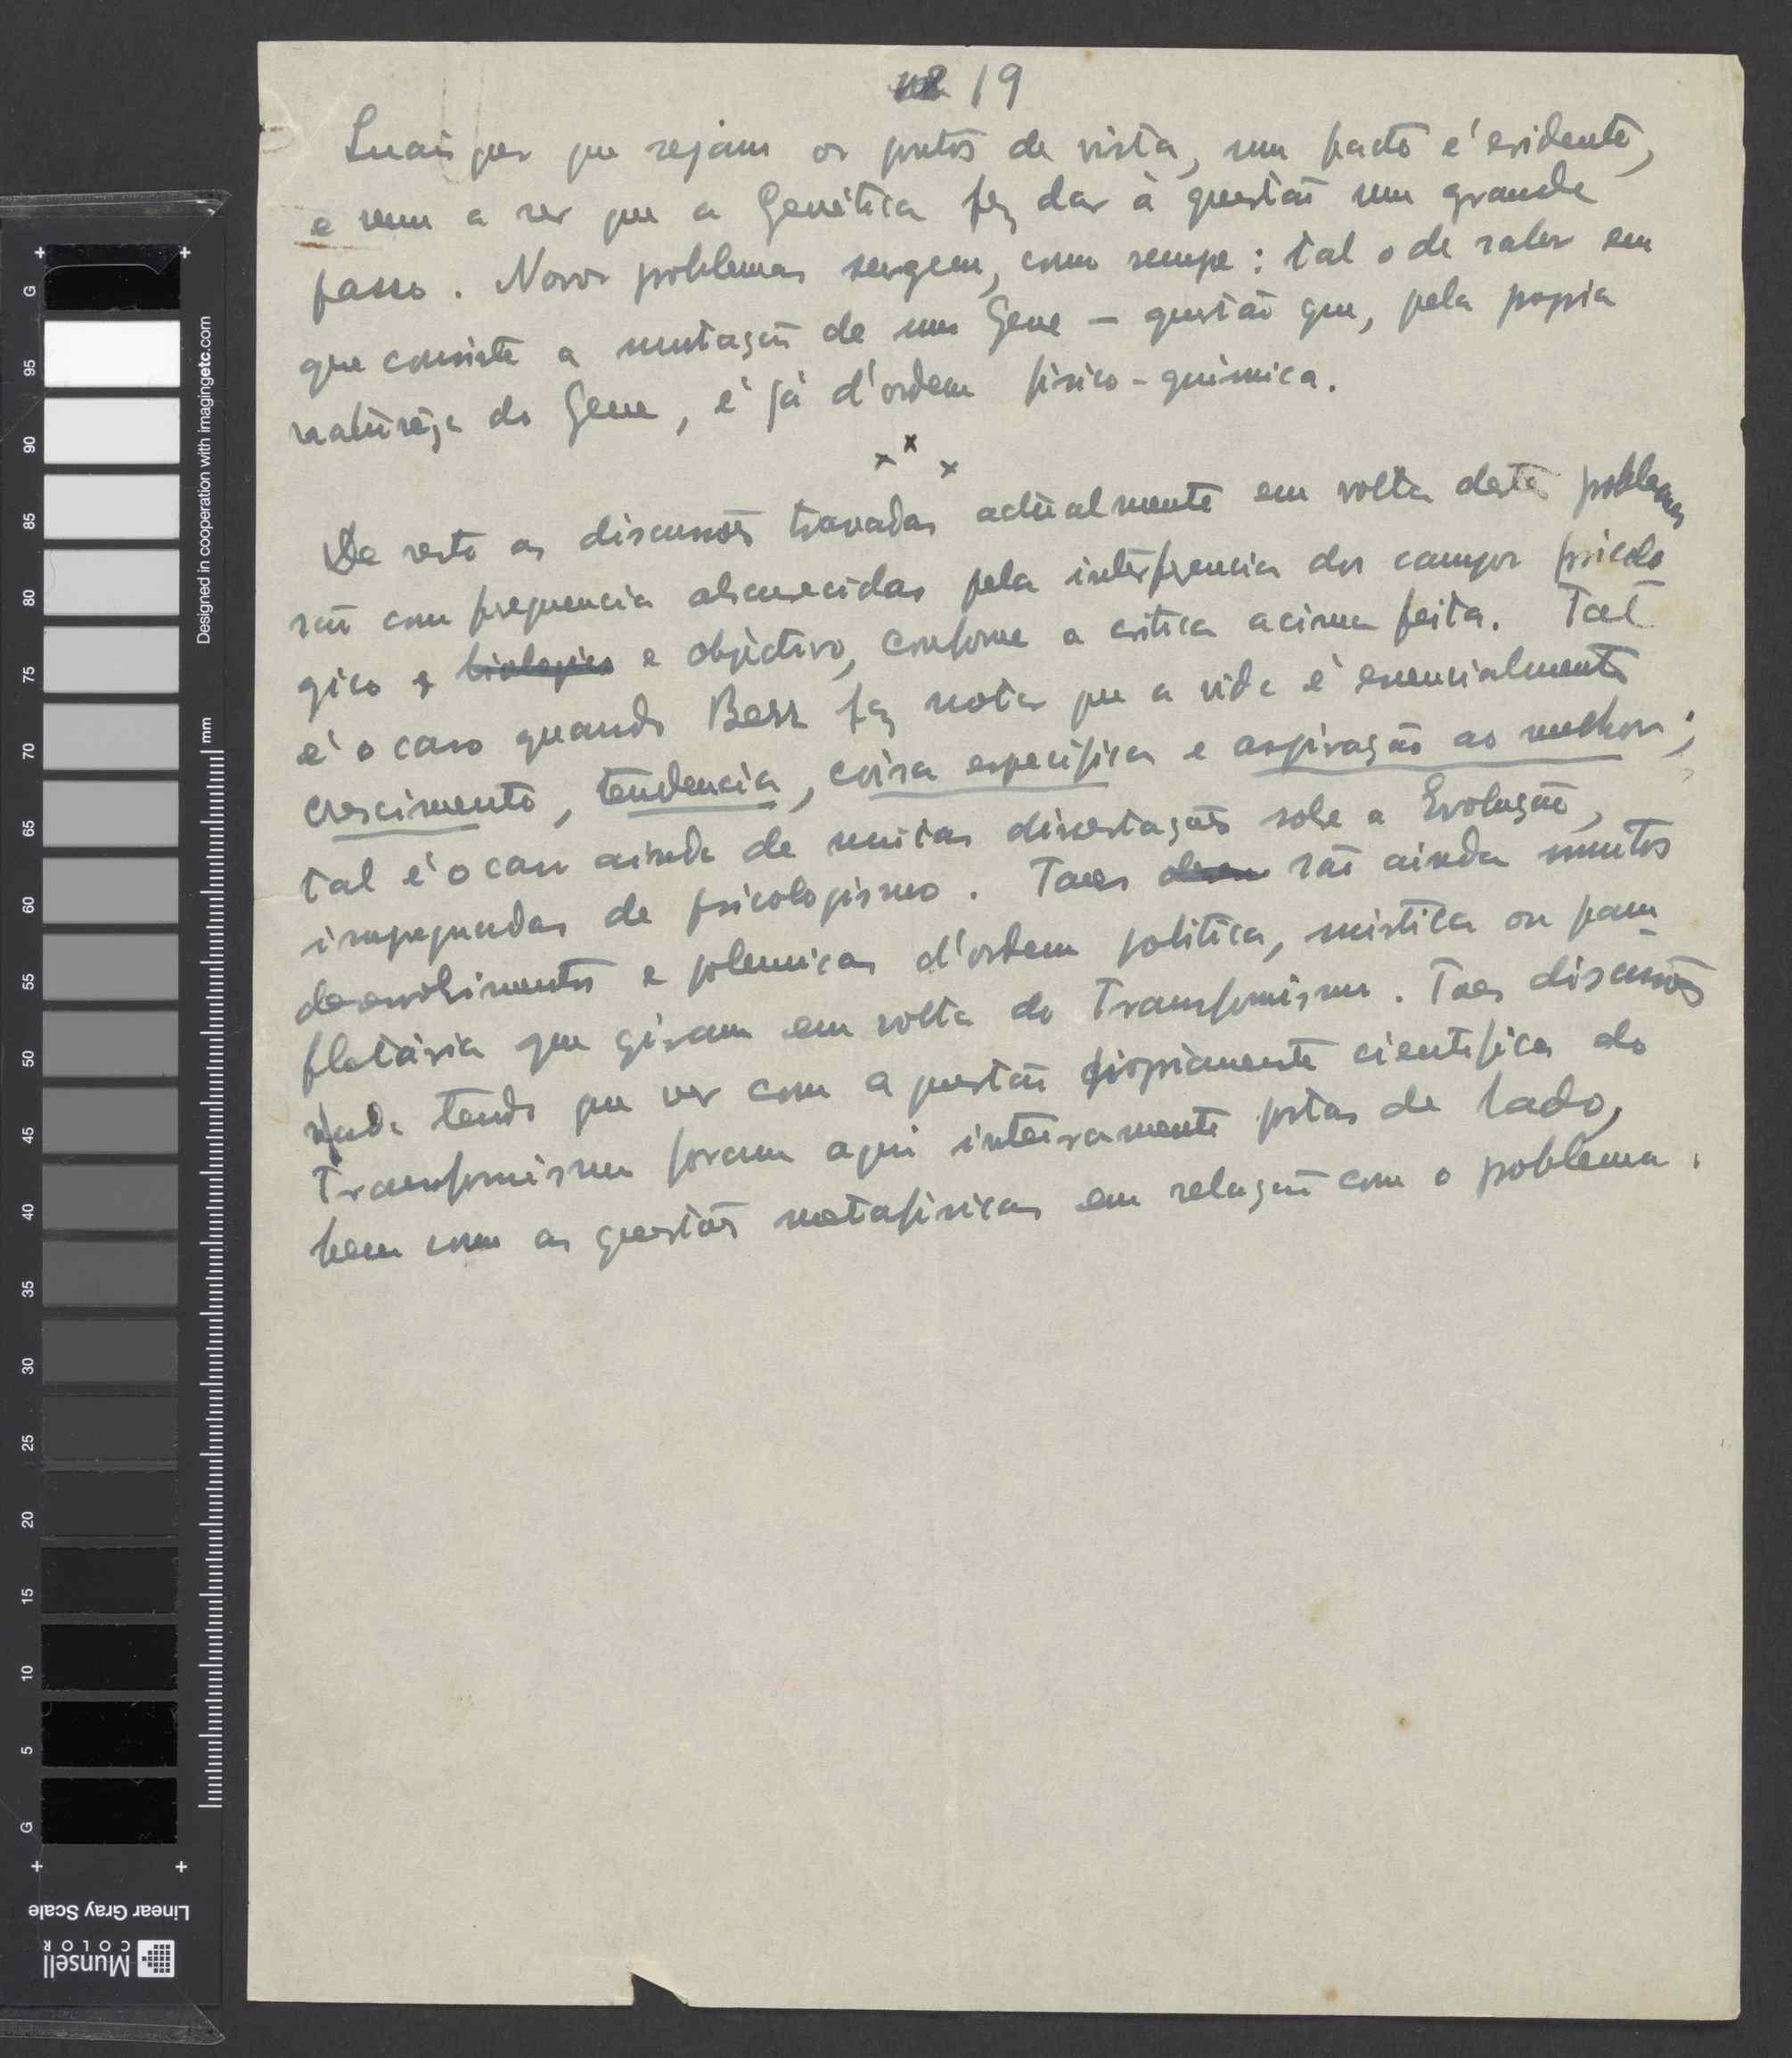 19
Quaisquer que sejam os pontos de vista, um facto é evidente,
e vem a ser que a Genética fez dar à questão um grande
passo. Novos problemas surgem, como sempre: tal o de saber em
que consiste a mutação de um Gene — questão que, pela propria
natureza do Gene, é já d'ordem físico-química.
x x x
De resto as discussões travadas actualmente em volta destes problemas
são com frequencia obscurecidas pela interferencia dos campos psicoló
gico e biologico e objectivo, conforme a critica acima feita. Tal
é o caso quando Berr fez notar que a vida é essencialmente
crescimento, tendencia, coisa especifica e aspiração ao melhor;
tal é o caso ainda de muitas dissertações sobre a Evolução,
impregnadas de psicologismo. Taes são ainda muitos
desenvolvimentos e polemicas d'ordem politica, mistica ou pan
fletária que giram em volta do Transformismo. Taes discussões
nada tendo que ver com a questão propriamente cientifica do
Transformismo foram aqui inteiramente postas de lado,
bem como as questões metafisicas em relação com o problema.
Designed in cooperation with imagingetc.com
mm
G 95 90 85 80 75 70 65 60 55 50 45 40 35 30 25 20 15 10 5 G
Linear Gray Scale
Munsell
COLOR